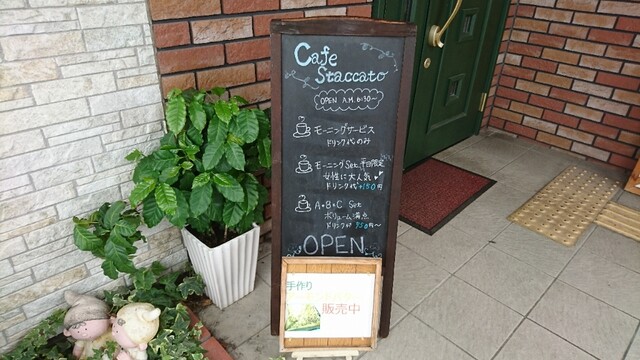 Cafe
Staccato
OPEN A.M. 6:30~
モーニングサービス
ドリンク代のみ
モーニングSet 平日限定
女性に大人気
ドリンク代+150円
A・B・C Set
ボリューム満点
ドリンク付 350円~
OPEN
手作り
販売中